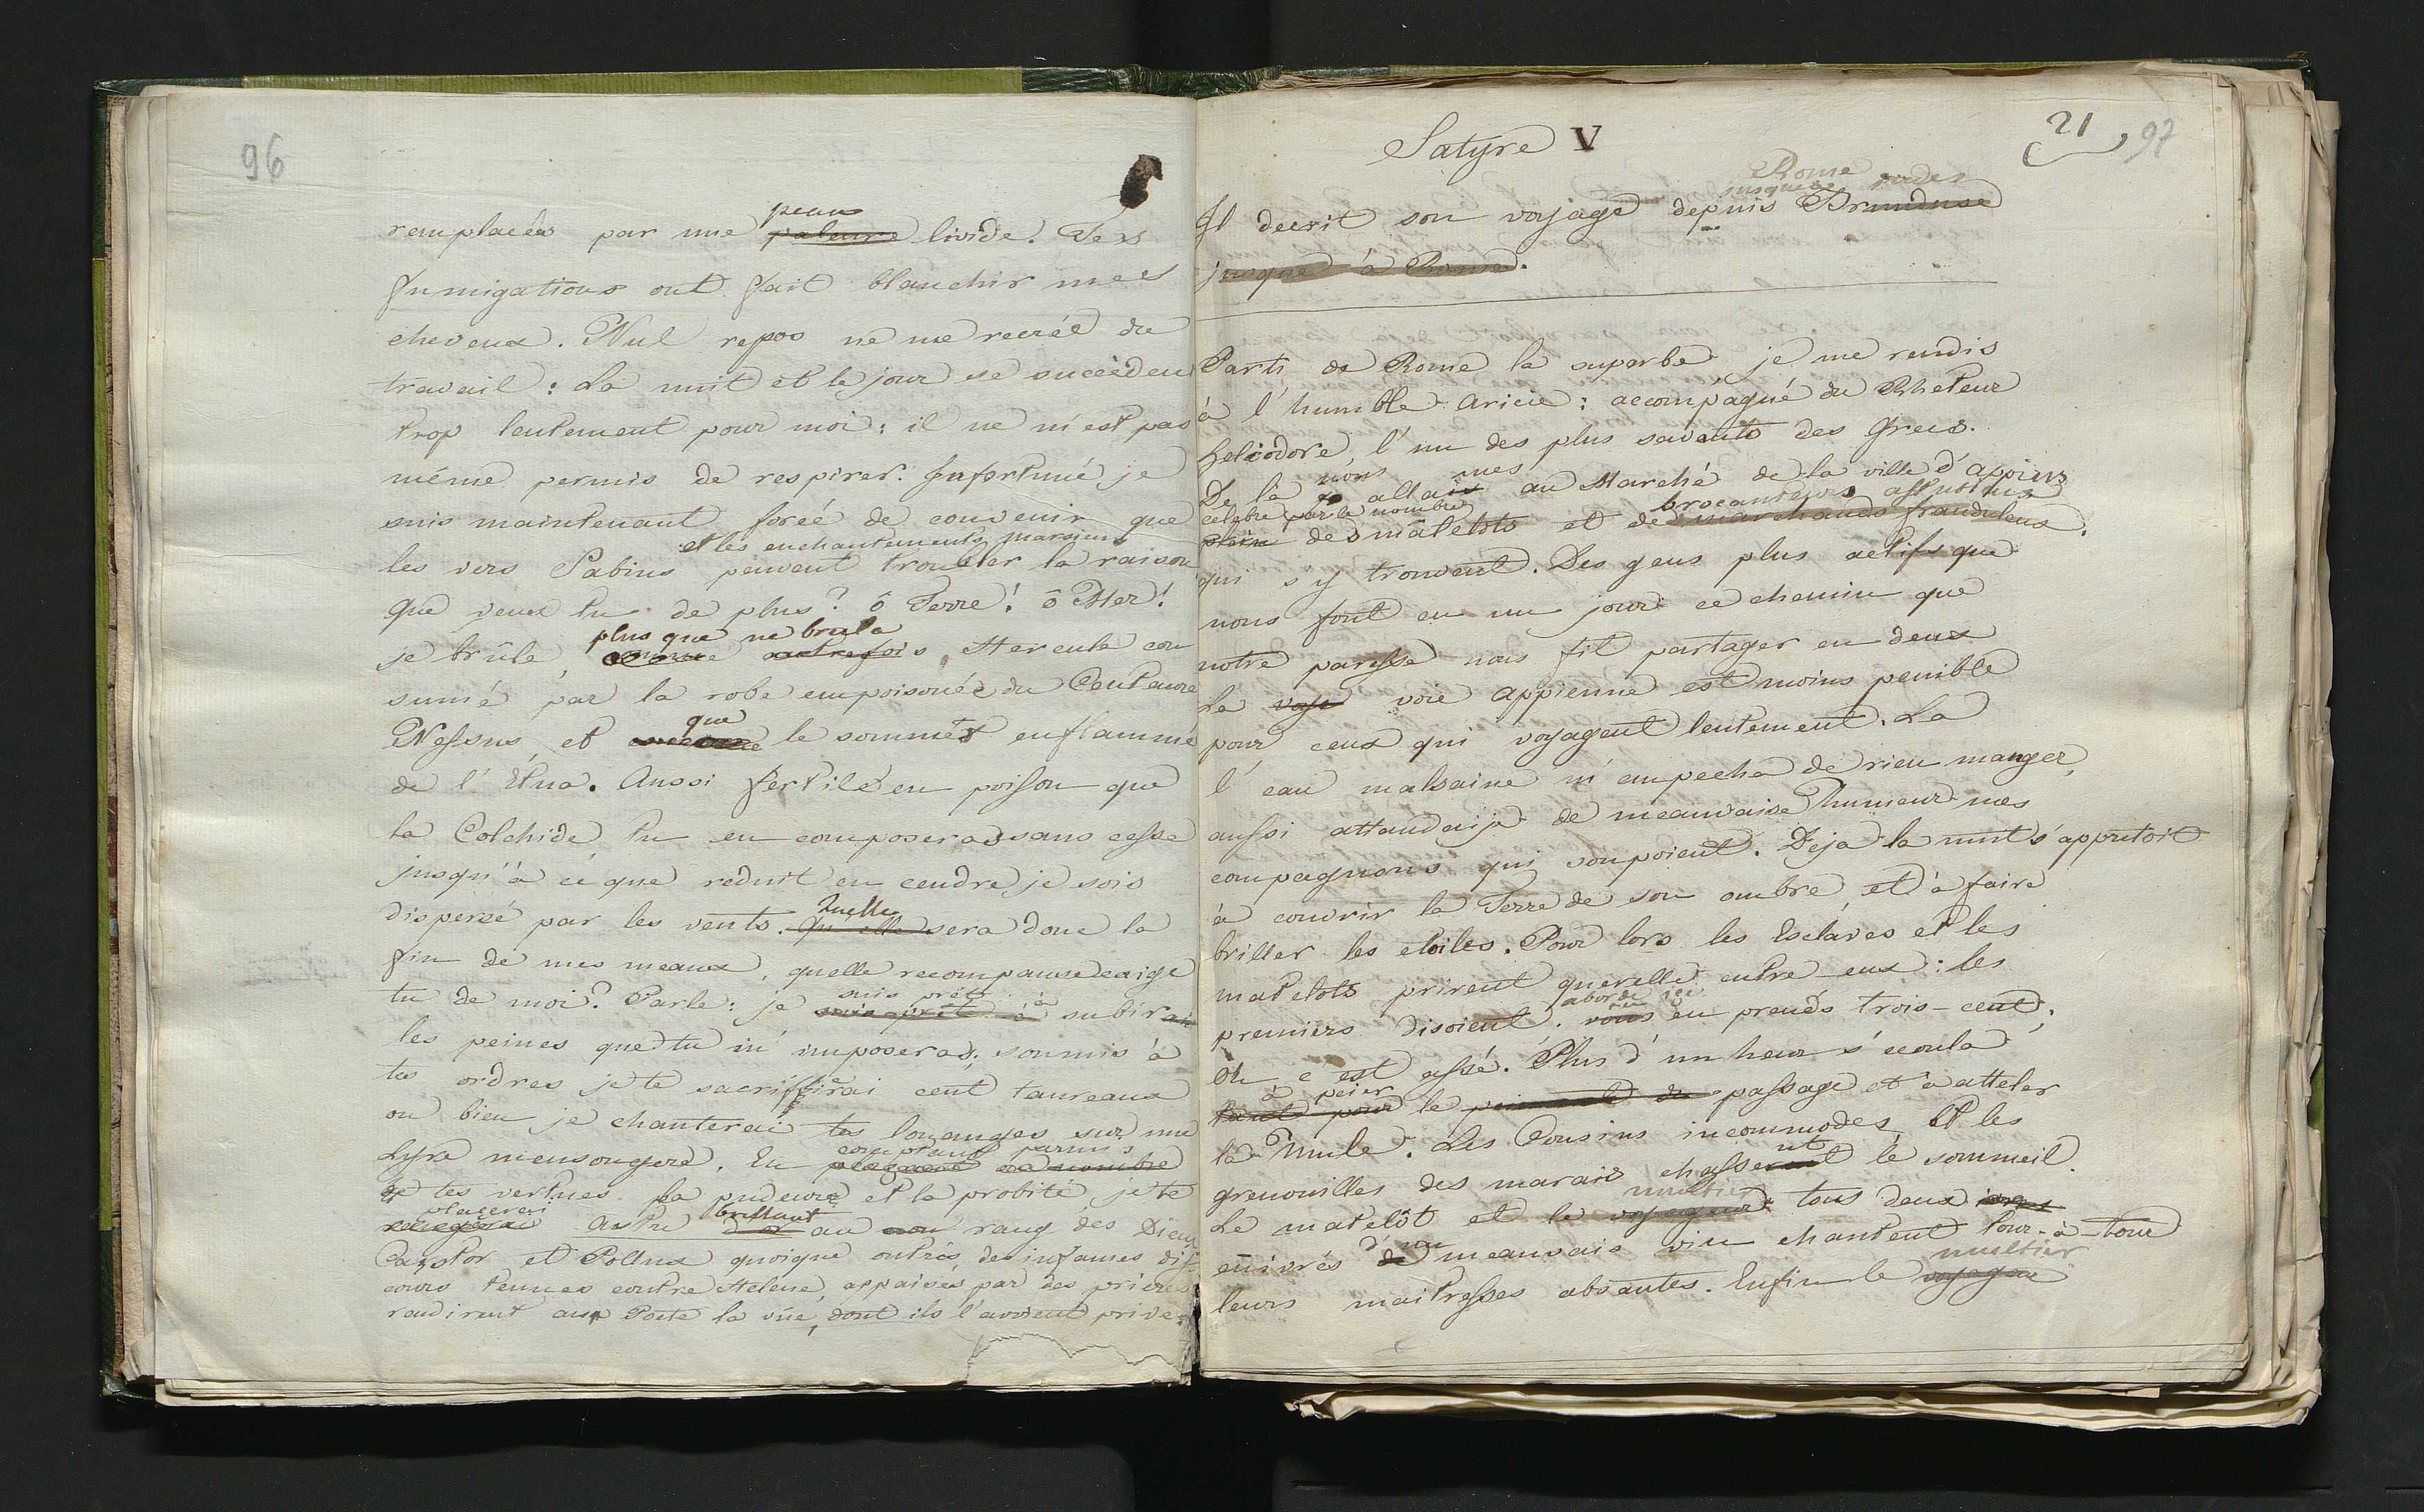 96
peau
remplacées par une paleure livide. Tes
fumigations ont fait blanchir mes
cheveux. Nul repos ne me recrée du
travail : La nuit et le jour se succèden
trop lentement pour moi : il ne m'est pas
même permis de respirer. Infortuné, je
suis maintenant forcé de convenir que
et les enchantements marsiens
les vers Sabins peuvent troubler la raison
que veux tu de plus ? ô Terre ! ô Mer !
plus que ne brula
je brûle, comme autrefois, Hercule con
sumé par la robe empoisonée du Centaure
que
Nessus, et comme le sommet enflamme
de l'Etna. Aussi fertile en poison que
la Colchide tu en composeras sans cesse
jusqu'à ce que reduit en cendre, je sois
Quelle
dispersé par les vents. Qu'elle sera donc la
fin de mes meaux, quelle recompanse exige
tu de moi ? Parle : je
suis prêt à
suis prêt à subirai
les peines que tu m'imposeras : soumis à
tes ordres je te sacriffirai cent taureaux
ou bien, je chanterai tes louanges sur une
comptant parmis
Lyre mensongere. En au nombre
de tes vertues la pudeure et la probité, je te
placerai brillant
Astre d'or au rang des Dieu
Castor et Pollux quoique outrés des infames dis
cours tennes contre Helene, appaisés par des prieres
rendirent aux Poete la vüe, dont ils l'avoient prive.
Satyre V
21
97
Rome
jusque
Il decrit son voyage depuis Brunduse
jusque à Rome.
Parti de Rome la superbe je me rendis
à l'humble Aricie : accompagné du Rheteur
heliodore, l'un des plus savants des Grecs.
nous mes
De là je allais au Marché de la ville d'Appius
celebre par le nombre brocanteurs astutius
plein des mâtelots et de marchands frauduleux.
qui s'y trouvent. Des gens plus actifs que
nous font en un jour ce chemin que
notre paresse nous fit partager en deux
La voye voie Appienne est moins penible
pour ceux qui voyagent lentement. La
l'eau malsaine m'empecha de rien manger,
aussi attandaije de meauvaise humeur mes
compagnons qui soupoient. Deja la nuit s'appretoit
à couvrir la Terre de son ombre, et à faire
briller les etoiles. Pour lors les Esclaves et les
matelots prirent querelle entre eux : les
aborde ici
premiers disoient. vous en prends trois-cent,
Oh c'est assé. Plus d'un heur s'ecoula
à peier
tant pour le passage et à atteler
la Mule. Les Cousins incommodes, et les
nt
grenouilles des marais chasserent le sommeil.
multier
Le matelôt et le voyageur tous deux
d'un
enivrés de meauvais vin chantent tour-à-tour
multier
leurs maitresses absantes. Enfin le voyageur